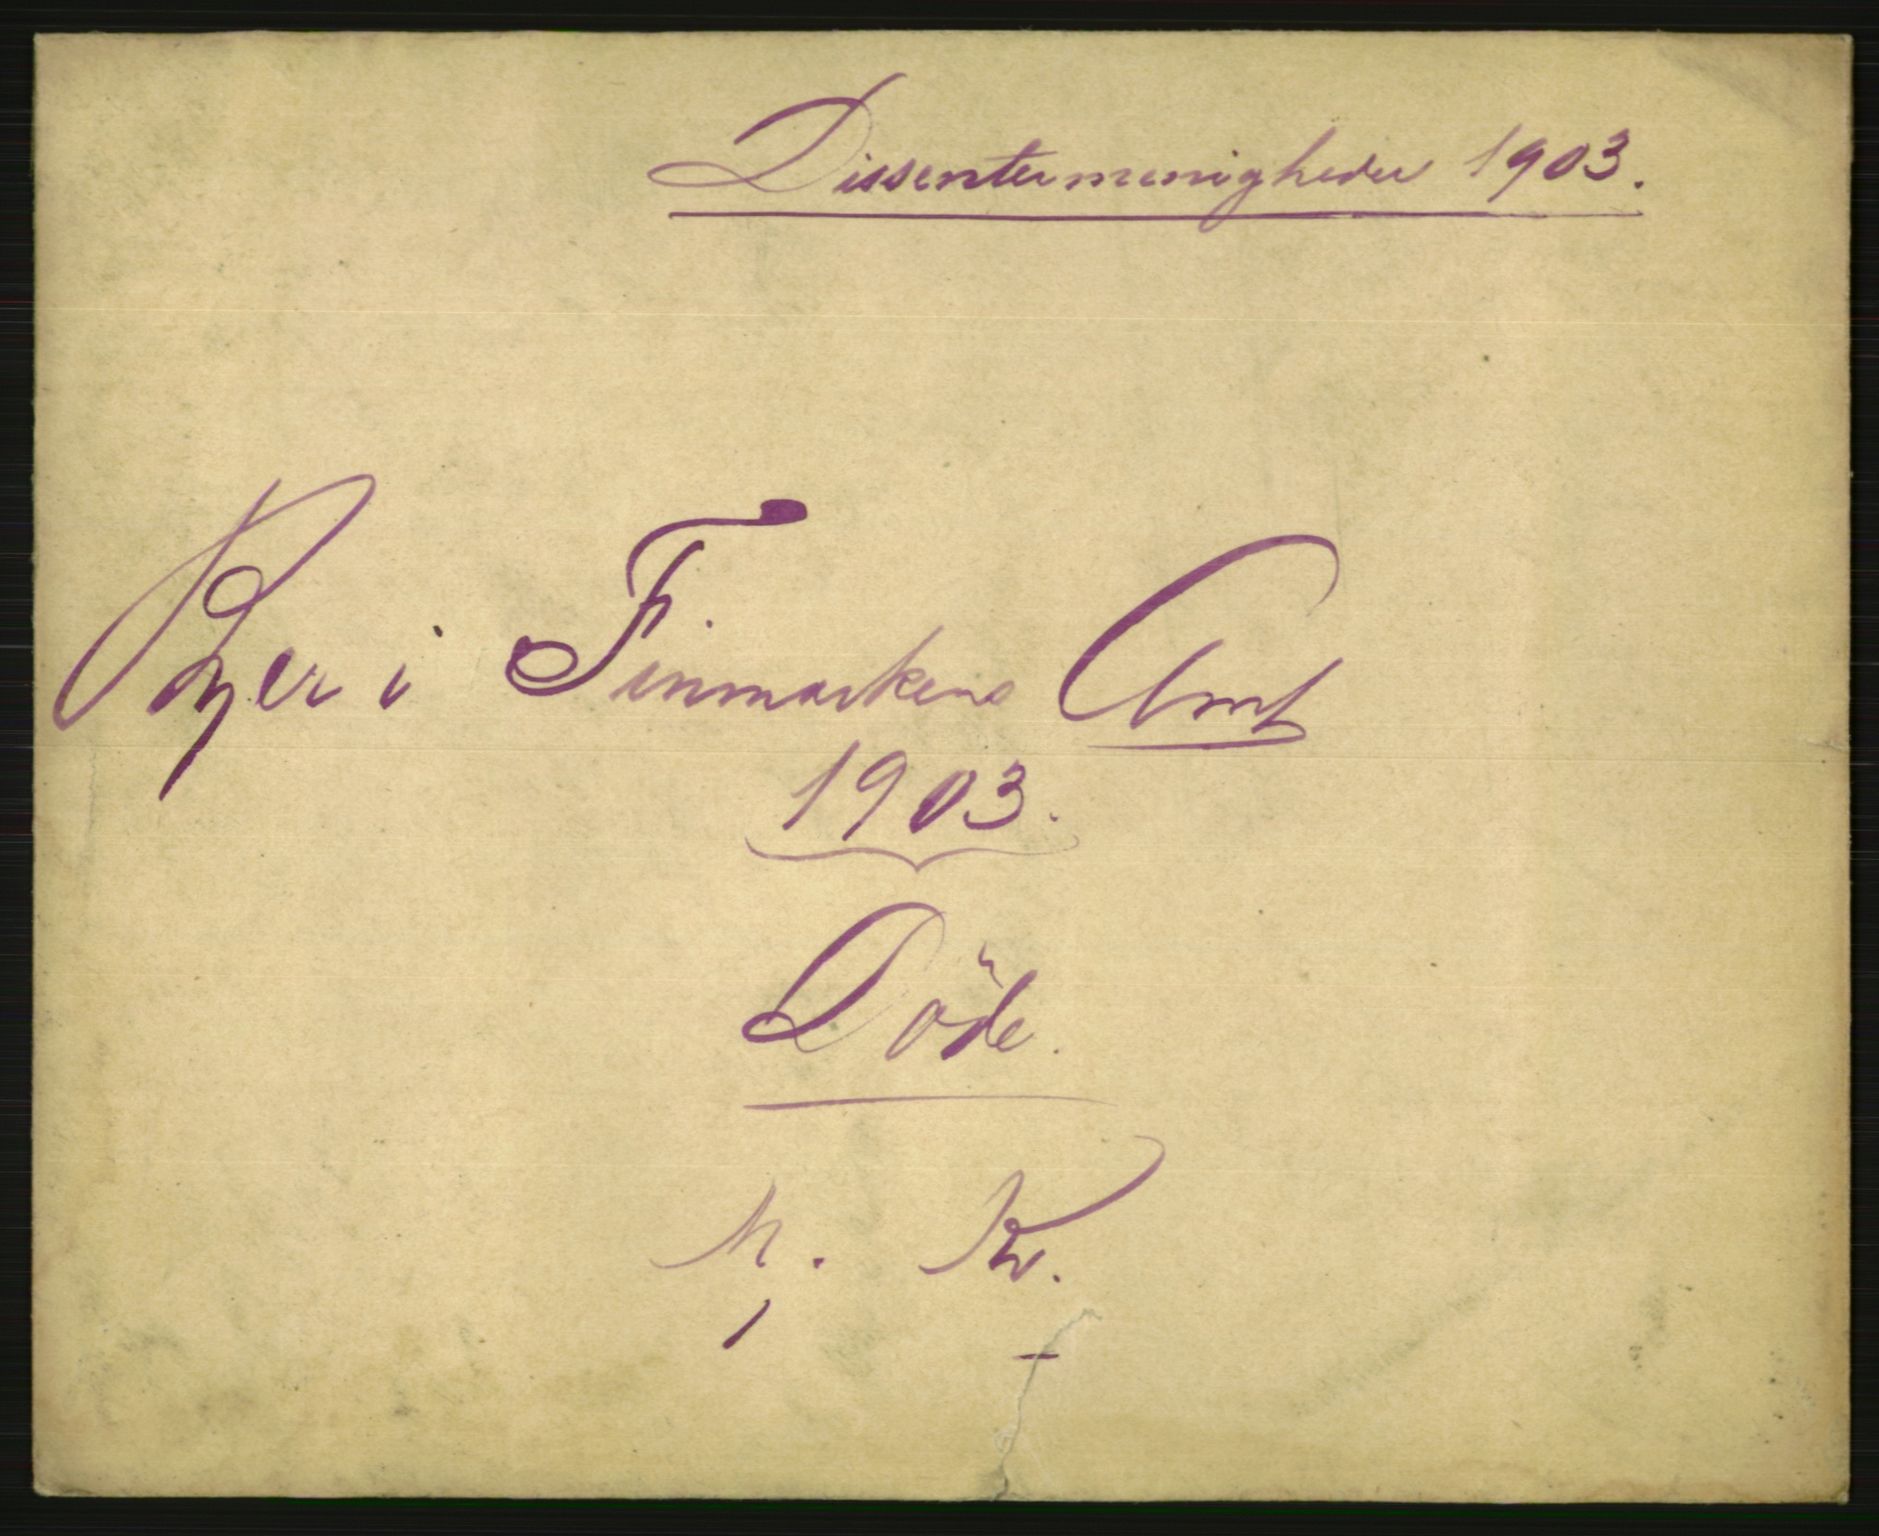 Dissentermenigheder 1903.
Byer i Finmarkens Amt
1903.
Döde.
M. Kv.
1 –